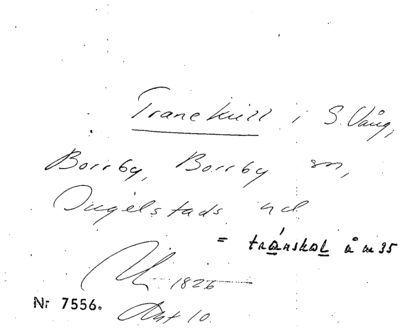 Tranekull i S. Vång,
Borrby, Borrby sn,
Ingelstads hd
= tránskal å m 35
1825
Nr 7556. Akt 10.